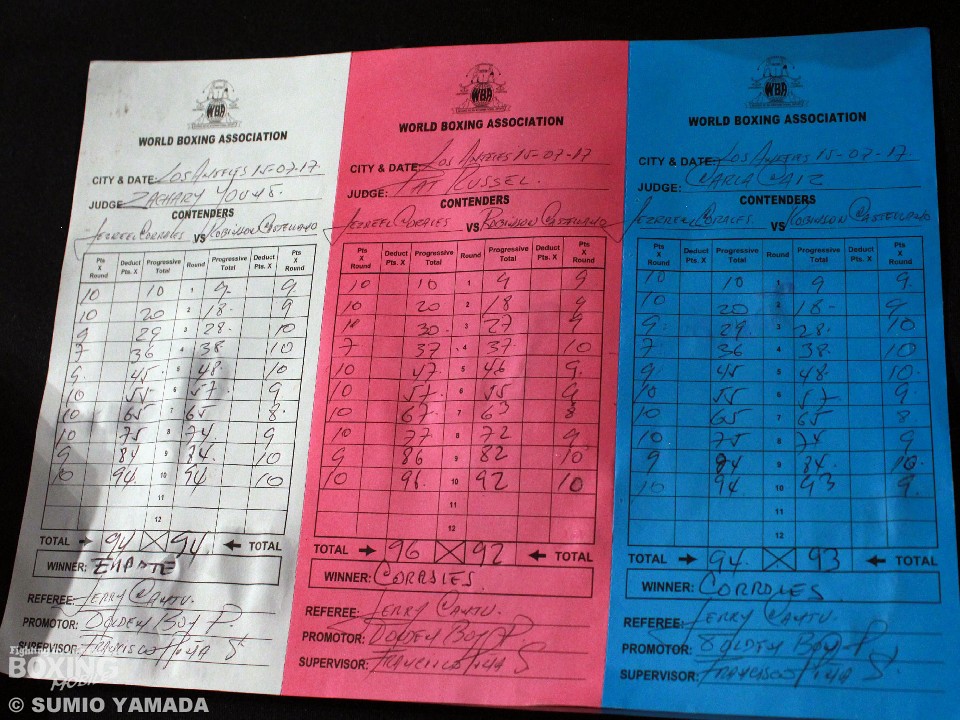 WBA
WORLD BOXING ASSOCIATION
CITY & DATE: LOS ANGELES 15-07-17
JUDGE ZACHARY YOUNG.
CONTENDERS
JEZREEL CORRALES VS ROBINSON CASTELLANO
Pts X Round Deduct Pts. X Progressive Total Round Progressive Total Deduct Pts. X Pts X Round
10 10 1 9 9
10 20 2 18 9
9 29 3 28 10
7 36 4 38 10
9 45 5 48 10
10 55 6 57 9
10 65 7 65 8
10 75 8 74 9
9 84 9 84 10
10 94 10 94 10
11
12
TOTAL 94 94 TOTAL
WINNER: EMPATE
REFEREE: JERRY CANTU
PROMOTOR: GOLDEN BOY P.
SUPERVISOR: FRANCISCO
WBA
WORLD BOXING ASSOCIATION
CITY & DATE: LOS ANGELES 15-07-17
JUDGE: PAT RUSSEL.
CONTENDERS
JEZREEL CORRALES VS ROBINSON CASTELLANO
Pts X Round Deduct Pts. X Progressive Total Round Progressive Total Deduct Pts. X Pts X Round
10 10 1 9 9
10 20 2 18 9
10 30 3 27 9
7 37 4 37 10
10 47 5 46 9
10 57 6 55 9
10 67 7 63 8
10 77 8 72 9
9 86 9 82 10
10 96 10 92 10
11
12
TOTAL 96 92 TOTAL
WINNER: CORRALES.
REFEREE: JERRY CANTU.
PROMOTOR: GOLDEN BOY P
SUPERVISOR: FRANCISCO
WBA
WORLD BOXING ASSOCIATION
CITY & DATE: LOS ANGELES 15-07-17
JUDGE: CARLA CAIZ
CONTENDERS
JEZREEL CORRALES VS ROBINSON CASTELLANO
Pts X Round Deduct Pts. X Progressive Total Round Progressive Total Deduct Pts. X Pts X Round
10 10 1 9 9
10 20 2 18 9
9 29 3 28 10
7 36 4 38 10
9 45 5 48 10
10 55 6 57 9
10 65 7 65 8
10 75 8 74 9
9 84 9 84 10
10 94 10 93 9
11
12
TOTAL 94 93 TOTAL
WINNER: CORRALES
REFEREE: JERRY CANTU.
PROMOTOR: GOLDEN BOY P
SUPERVISOR: FRANCISCO
BOXING
© SUMIO YAMADA